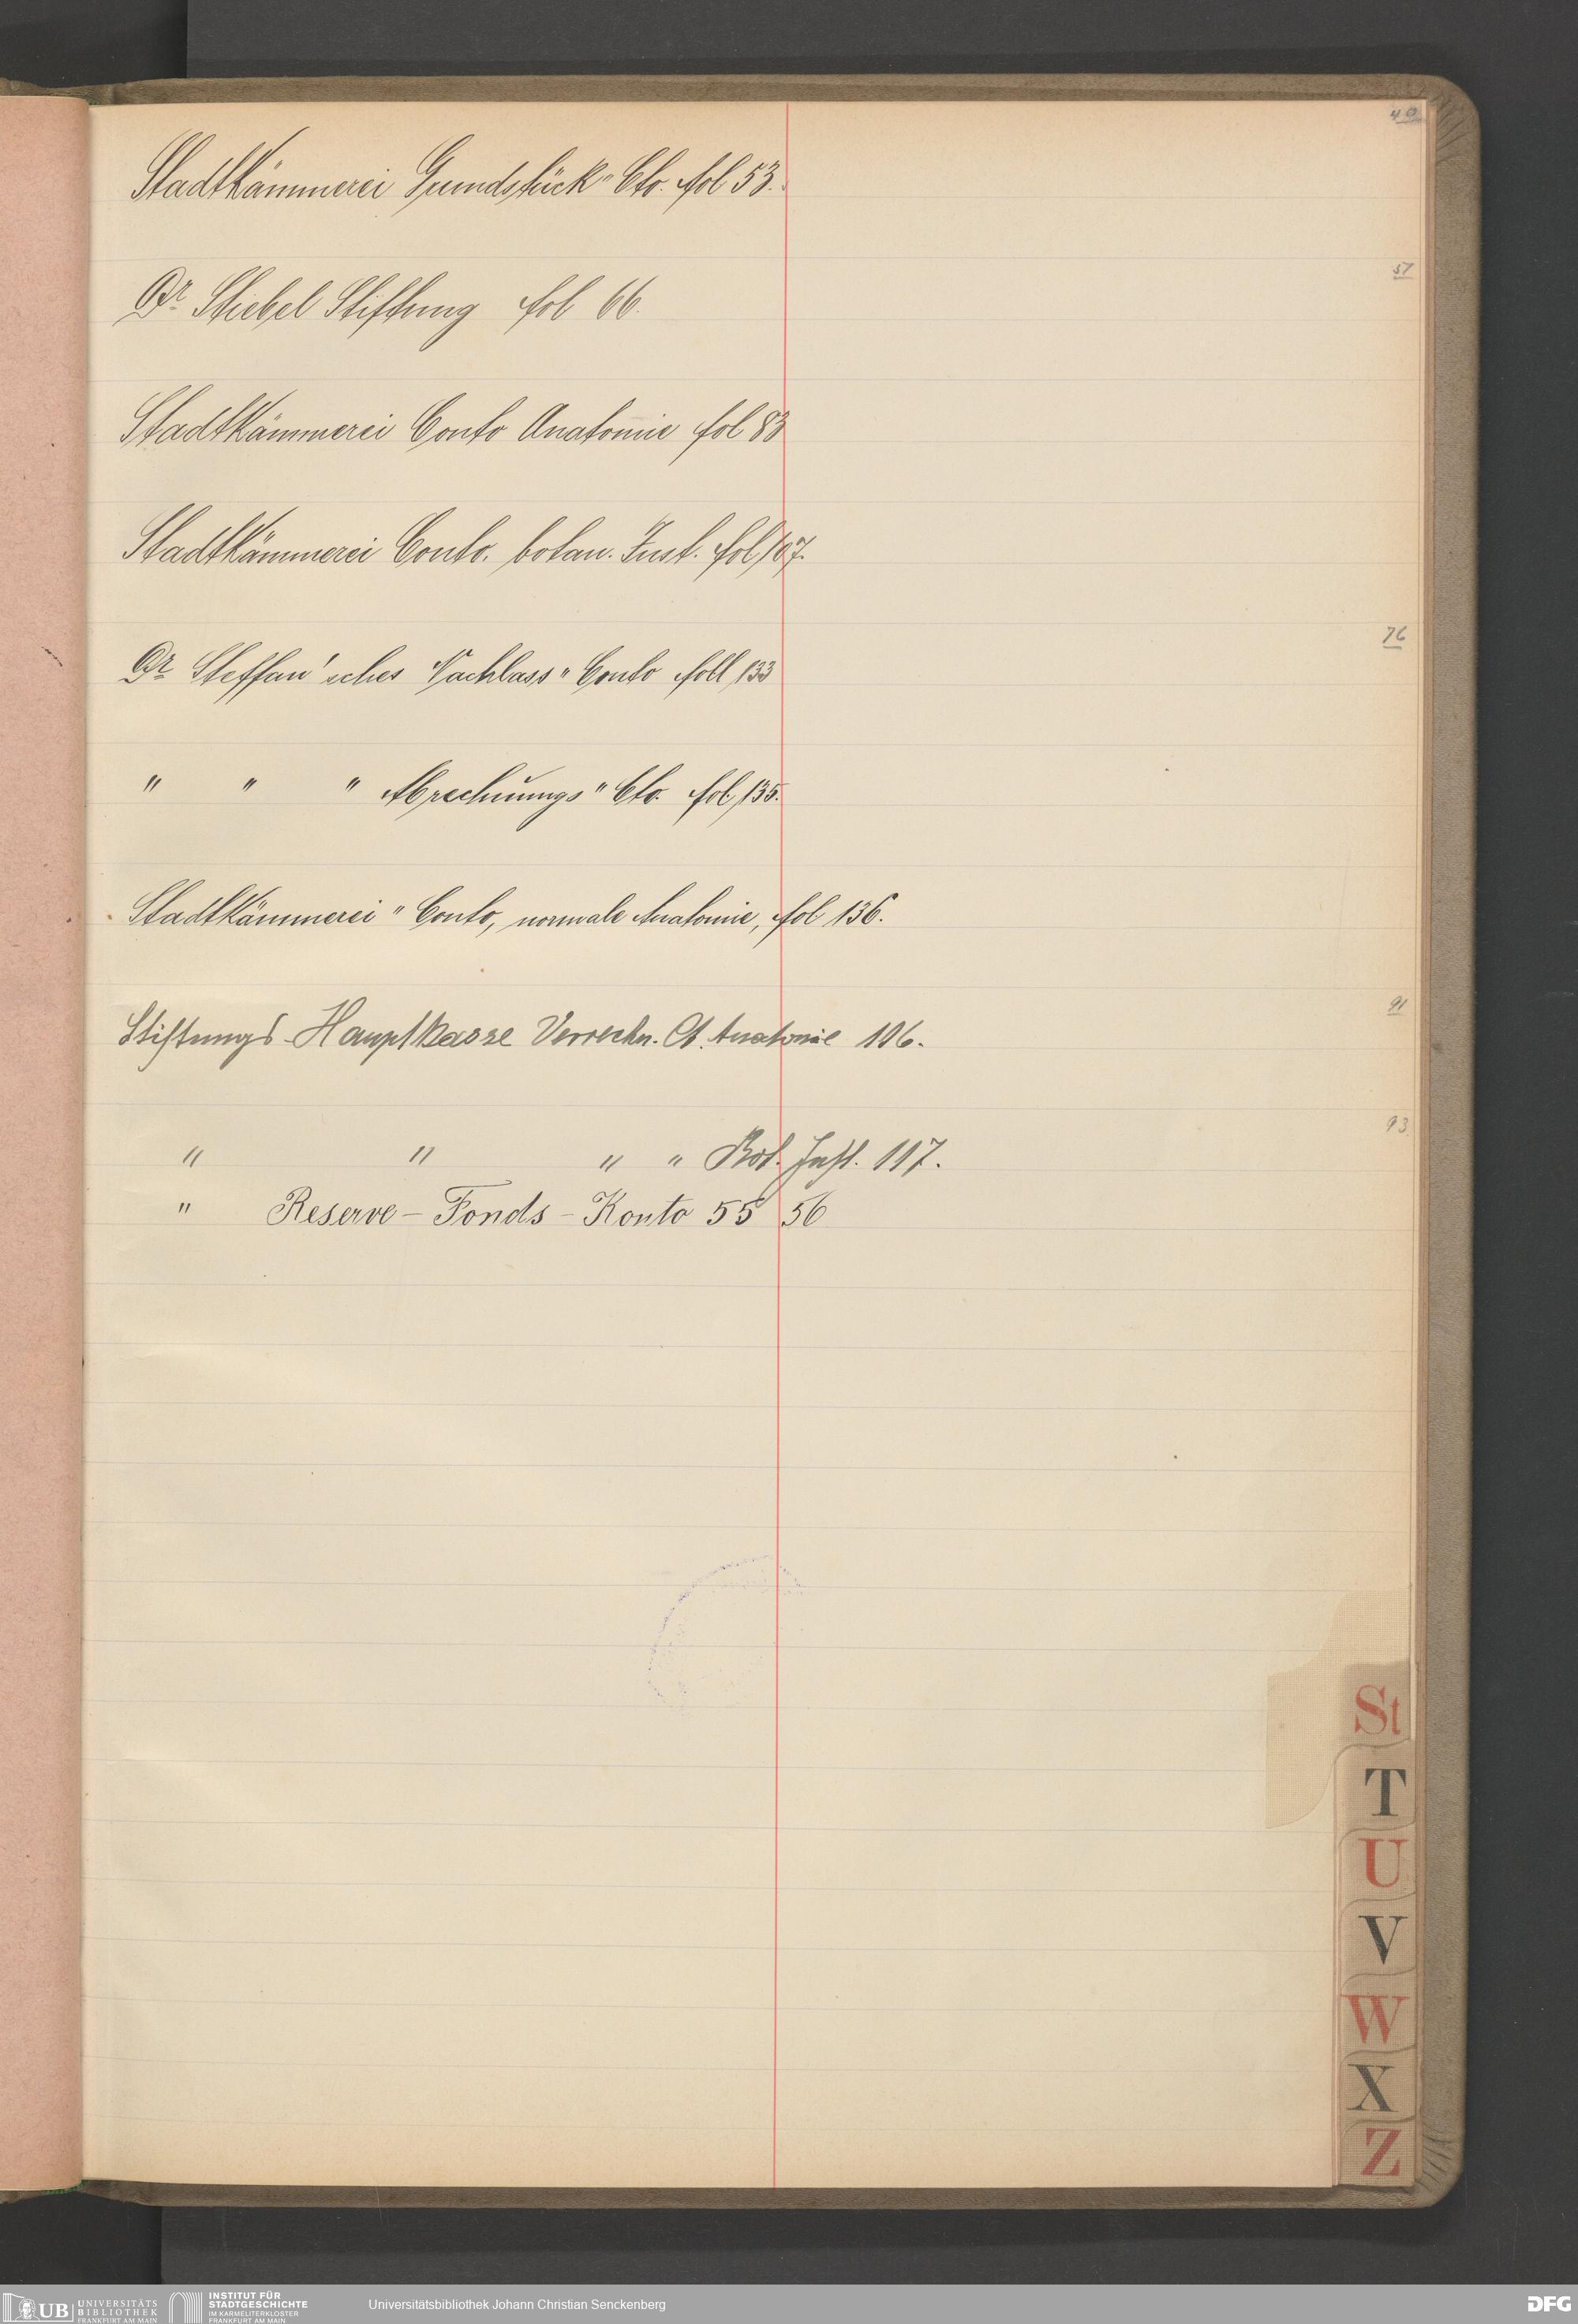 49
Stadtkämmerei Grundstück" Cto. fol 53.
51
Dr. Stiebel Stiftung fol 66.
Stadtkämmerei Conto Anatomie fol 83
Stadtkämmerei Conto. botan. Inst. fol 107.
76
Dr. Steffan'sches Nachlass" Conto foll 133
" " " Abrechnungs" Cto. fol 135.
Stadtkämmerei" Conto, normale Anatomie, fol 136.
91
Stiftungs-Hauptkasse Verrechn. Ct. Anatomie 106.
93
" " " " Bot. Inst. 117.
" Reserve-Fonds-Konto 55 56
St
T
U
V
W
X
Z
UB UNIVERSITÄTS BIBLIOTHEK FRANKFURT AM MAIN
INSTITUT FÜR STADTGESCHICHTE IM KARMELITERKLOSTER FRANKFURT AM MAIN
Universitätsbibliothek Johann Christian Senckenberg
DFG